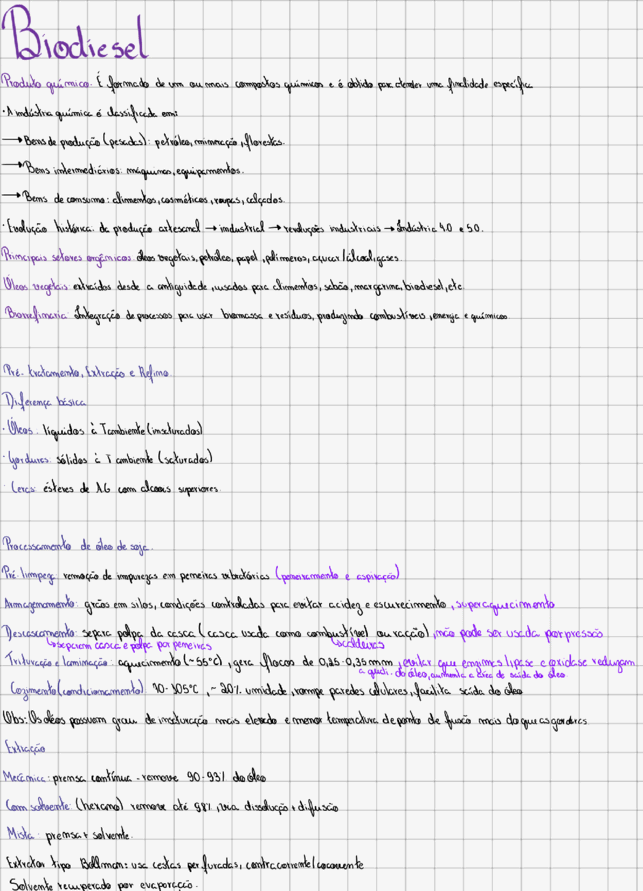 Biodiesel
Produto químico: É formado de um ou mais compostos químicos e é obtido para atender uma finalidade específica
· A indústria química é classificada em:
→ Bens de produção (pesados): petróleo, mineração, florestas.
→ Bens intermediários: máquinas, equipamentos.
→ Bens de consumo: alimentos, cosméticos, roupas, calçados.
· Evolução histórica: da produção artesanal → industrial → revoluções industriais → Indústria 4.0 e 5.0.
Principais setores orgânicos: óleos vegetais, petróleo, papel, polímeros, açucar/álcool, gases
Óleos vegetais: extraídos desde a antiguidade, usados para alimentos, sabão, margarina, biodiesel, etc.
Biorrefinaria: Integração de processos para usar biomassa e resíduos, produzindo combustíveis, energia e químicos
Pré-tratamento, Extração e Refino
Diferença básica
· Óleos: líquidos à T ambiente (insaturados)
· Gorduras: sólidos à T ambiente (saturados)
· Ceras: ésteres de AG com alcoois superiores.
Processamento de óleo de soja.
Pré limpeza: remoção de impurezas em peneiras vibratórias (peneiramento e aspiração)
Armazenamento: grãos em silos, condições controladas para evitar acidez e escurecimento, superaquecimento
Descascamento: separa polpa da casca (casca usada como combustível ou ração), não pode ser usada por pressão
↳ separam casca e polpa por peneiras ↳ caldeiras
Trituração e laminação: aquecimento (~55°C), gera flocos de 0,25-0,35mm, evitar que enzimas lipase e oxidase reduzam
a quali. do óleo, aumenta a área de saída do óleo
Cozimento (condicionamento) 70-105°C, ~20% umidade, rompe paredes celulares, facilita saída do óleo
Obs: Os óleos possuem grau de insaturação mais elevado e menor temperatura de ponto de fusão mais do que as gorduras
Extração
Mecânica: prensa contínua - remove 90-93% do óleo
Com solvente: (hexano) remove até 98%, via dissolução + difusão
Mista: prensa + solvente.
Extrator tipo Bollman: usa cestas perfuradas, contracorrente/cocorrente
Solvente recuperado por evaporação.